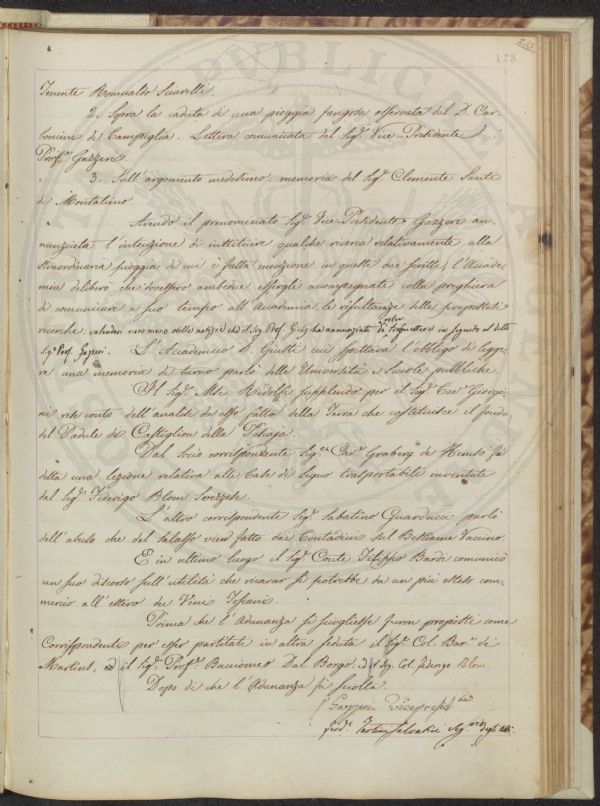 128
Tenente Romualdo Sciarelli.
2. Sopra la caduta di una pioggia fangosa osservata dal D. Car-
boncini di Campiglia. Lettera comunicata dal Sig.r Vice-Presidente
Prof.e Gazzeri
3. Sull'argomento medesimo: memoria del Sig.r Clemente Santi
di Montalcino
Avendo il prenominato Sig.r Vice-Presidente Gazzeri an-
nunziata l'intenzione di instituire qualche ricerca relativamente alla
straordinaria pioggia di cui è fatta menzione in queste due scritte, l'Accade-
mia deliberò che dovessero ambedue essergli accompagnate colla preghiera
di comunicare a suo tempo all'Accademia le risultanze delle progettate
ricerche: valendosi non meno delle notizie che il Sig. Prof. Giulj ha annunziato di voler trasmettere in seguito al detto
Sig.r Prof. Gazzeri. L'Accademico D. Giusti cui spettava l'obbligo di legge-
re una memoria di turno parlò delle Università e Scuole pubbliche.
Il Sig.r Mse Ridolfi supplendo per il Sig.r Cav.e Giorgi-
ni rese conto dell'analisi da esso fatta della Terra che costituisce il fondo
del Padule di Castiglion della Pescaja
Dal socio corrispondente Sig.r Cav.e Graberg de Hemso fu
detta una lezione relativa alle Case di legno trasportabili inventate
dal Sig.r Federigo Blom Svezzese.
L'altro corrispondente Sig.r Sabatino Guarducci parlò
dell'abuso che del salasso vien fatto dai Contadini sul Bestiame Vaccino.
E in ultimo luogo il Sig.r Conte Filippo Bardi comunicò
un suo discorso sull'utilità che ricavar si potrebbe da un più esteso com-
mercio all'estero dei Vini Toscani.
Prima che l'Adunanza si sciogliesse furon proposti come
Corrispondenti per esser partitati in altra seduta il Sig.r Col. Bar.e de
Martius, il Sig.r Prof.e Baccioneo Dal Borgo. ed il Sig. Col. federigo Blom.
Dopo di che l'Adunanza fu sciolta.
G. Gazzeri Vicepresid.te